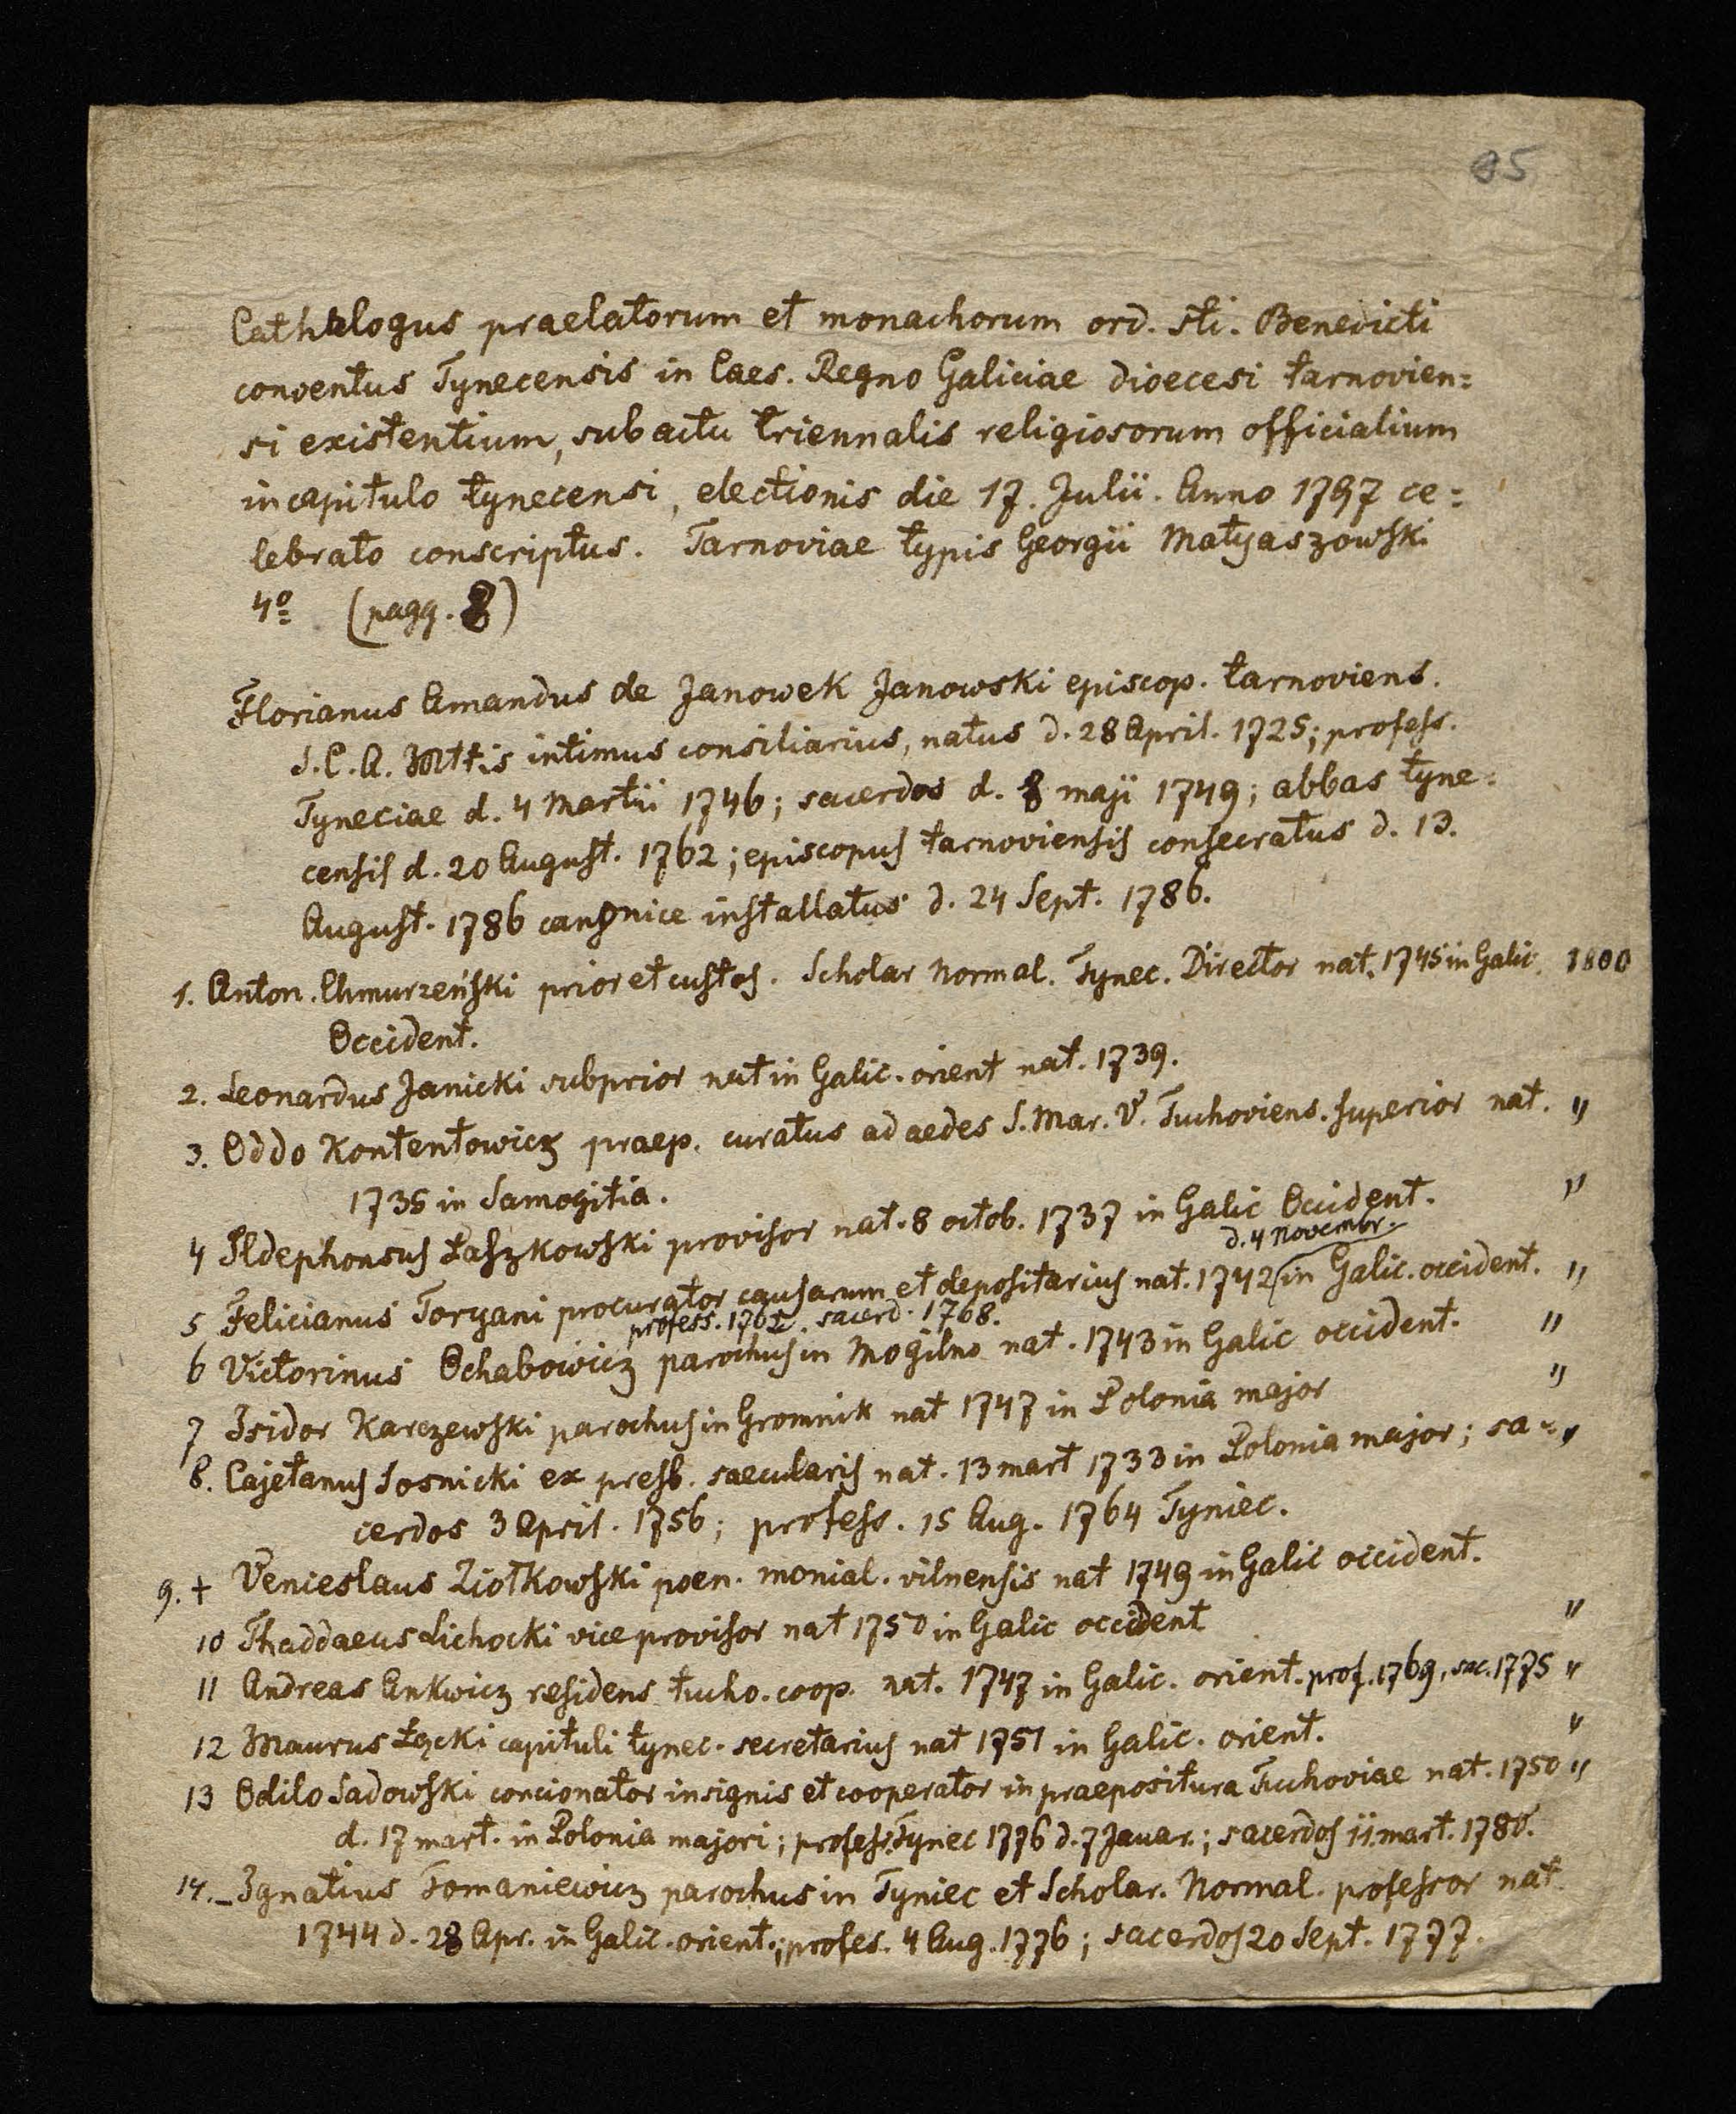 85
Cathalogus praelatorum et monachorum ord. sti. Benedicti
conventus Tynecensis in Caes. Regno Galiciae dioecesi tarnovien=
si existentium, sub actu triennalis religiosorum officialium
in capitulo tynecensi, electionis die 17. Julii. Anno 1797 ce=
lebrato conscriptus. Tarnoviae typis Georgii Matyaszowski
4º (pagg. 8)
Florianus Amandus de Janowek Janowski episcop. tarnoviens.
S.C.A. Mttis intimus consiliarius, natus d. 28 April. 1725; profess.
Tyneciae d. 4 Martii 1746; sacerdos d. 8 maji 1749; abbas tyne=
censis d. 20 August. 1762; episcopus tarnoviensis consecratus d. 13.
August. 1786 canonice installatus d. 24 Sept. 1786.
1. Anton. Chmurzeński prior et custos. Scholar Normal. Tynec. Director nat. 1745 in Galic. 1800
Occident.
2. Leonardus Janicki subprior nat in Galic. orient nat. 1739.
3. Oddo Kontentowicz praep. curatus ad aedes S. Mar. V. Tuchoviens. superior nat. "
1735 in Samogitia.
4 Ildephonsus Łaszkowski provisor nat. 8 octob. 1737 in Galic Occident. "
d. 4 Novembr.
5 Felicianus Toryani procurator causarum et depositarius nat. 1742 in Galic. occident. "
profess. 1762. sacerd. 1768.
6 Victorinus Ochabowicz parochus in Mogilno nat. 1743 in Galic occident. "
7 Isidor Karczewski parochus in Gromnik nat 1747 in Polonia major "
8. Cajetanus Sosnicki ex presb. saecularis nat. 13 mart 1733 in Polonia major; sa= "
cerdos 3 April. 1756; profess. 15 Aug. 1764 Tyniec.
9. + Venieslaus Ziołkowski poen. monial. vilnensis nat 1749 in Galic occident.
10 Thaddaeus Lichocki vice provisor nat 1750 in Galic occident "
11 Andreas Ankwicz residens tucho. coop. nat. 1747 in Galic. orient. prof. 1769, sac. 1775 "
12 Maurus Łęcki capituli tynec. secretarius nat 1751 in Galic. orient. "
13 Odilo Sadowski concionator insignis et cooperator in praepositura Tuchoviae nat. 1750 "
d. 17 mart. in Polonia majori; profess. Tynec 1776 d. 7 Januar.; sacerdos 11. mart. 1780.
14. _ Ignatius Tomaniewicz parochus in Tyniec et Scholar. Normal. professor nat
1744 d. 28 Apr. in Galic. orient.; profes. 4 Aug. 1776; sacerdos 20 Sept. 1777.